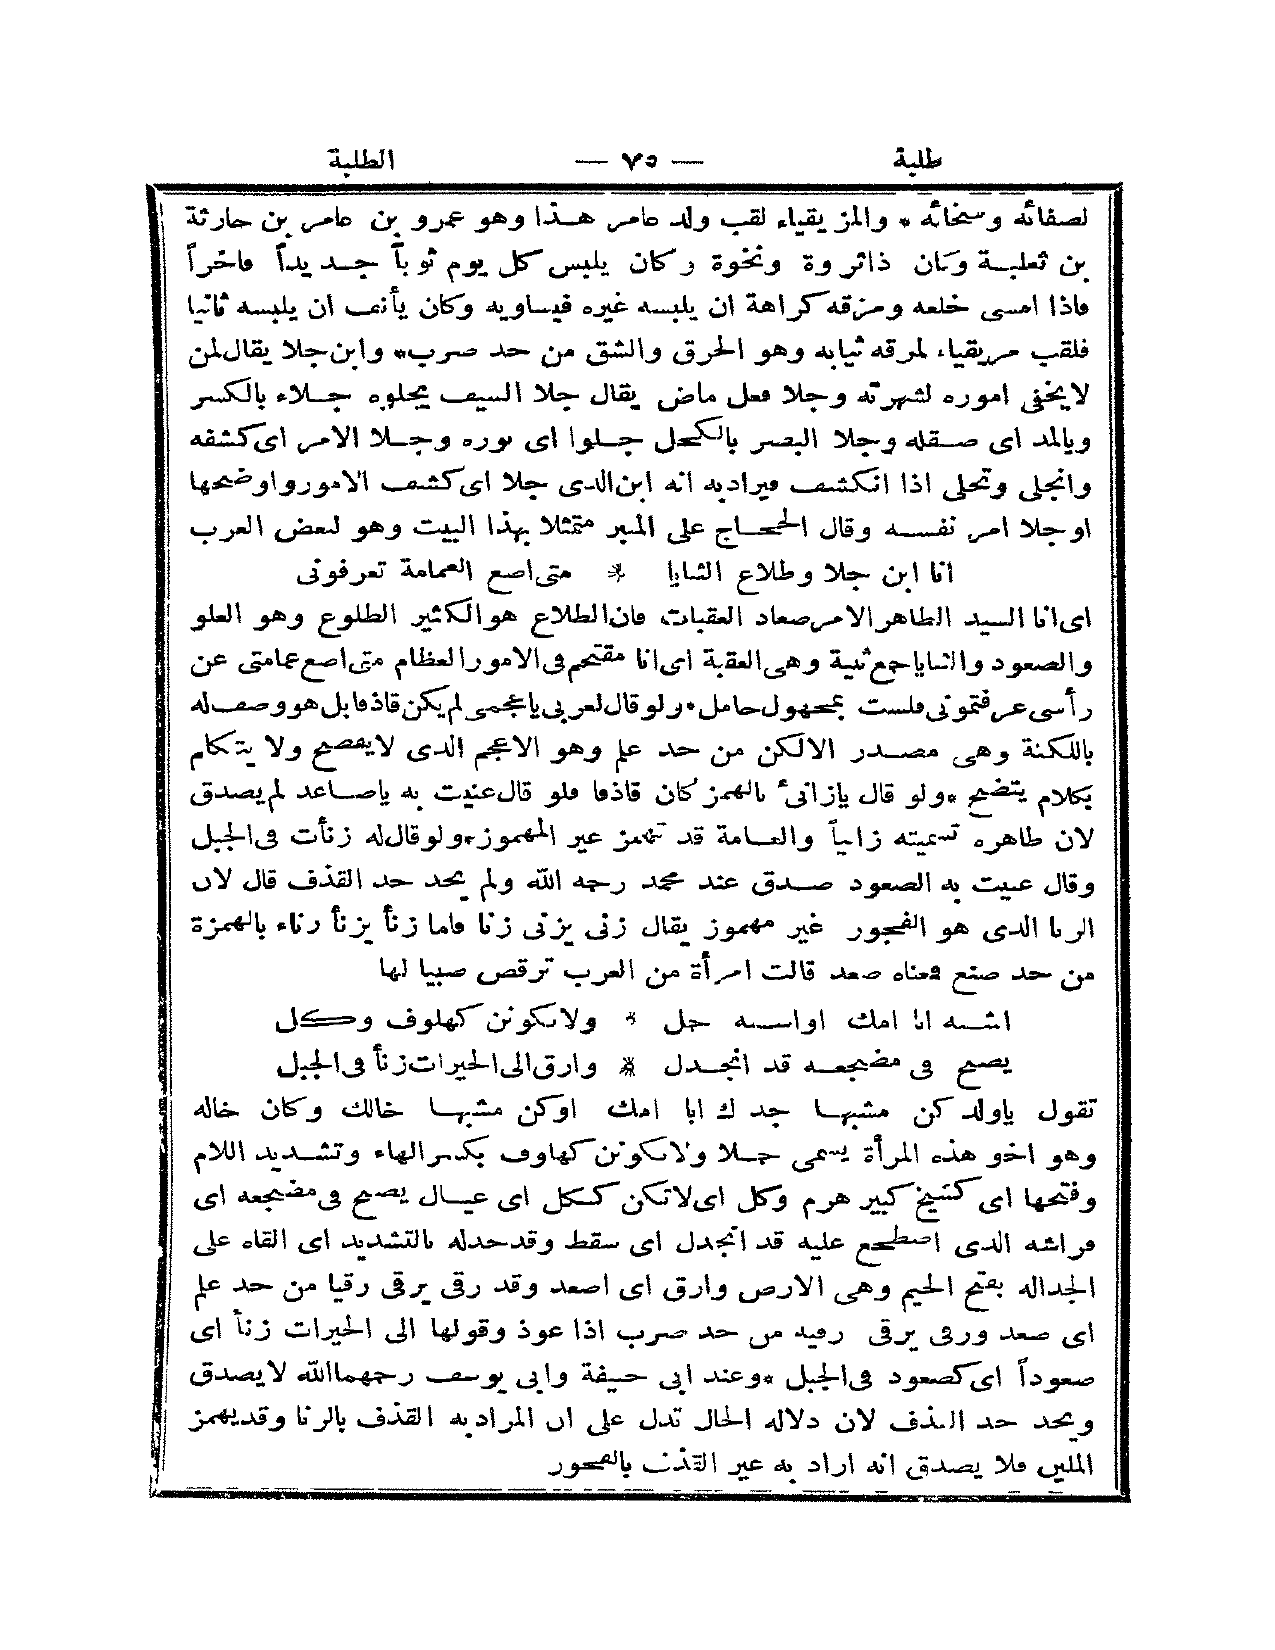 طلبة — ٧٥ — الطلبة
لصفائه وسخائه * والمزيقياء لقب ولد عامر هذا وهو عمرو بن عامر بن حارثة
بن ثعلبة وكان ذا ثروة ونخوة وكان يلبس كل يوم ثوبآ جديدآ فاخرآ
فاذا امسى خلعه ومزقه كراهة ان يلبسه غيره فيساويه وكان يأنف ان يلبسه ثانيا
فلقب مزيقياء لمزقه ثيابه وهو الخرق والشق من حد ضرب * وابن جلا يقال لمن
لا يخفى اموره لشهرته وجلا فعل ماض يقال جلا السيف يجلوه جلاء بالكسر
وبالمد اى صقله وجلا البصر بالكحل جلوا اى نوره وجلا الامر اى كشفه
وانجلى وتجلى اذا انكشف فيراد به انه ابن الذى جلا اى كشف الامور واوضحها
او جلا امر نفسه وقال الحجاج على المنبر متمثلا بهذا البيت وهو لبعض العرب
انا ابن جلا وطلاع الثنايا * متى اضع العمامة تعرفونى
اى انا السيد الظاهر الامر صعاد العقبات فان الطلاع هو الكثير الطلوع وهو العلو
والصعود والثنايا جمع ثنية وهى العقبة اى انا مقتحم فى الامور العظام متى اضع عمامتى عن
رأسى عرفتمونى فلست بمجهول خامل * ولو قال لعربى يا عجمى لم يكن قاذفا بل هو وصف له
باللكنة وهى مصدر الالكن من حد علم وهو الاعجم الذى لا يفصح ولا يتكلم
بكلام يتضح * ولو قال يا زانىء بالهمز كان قاذفا فلو قال عنيت به يا صاعد لم يصدق
لان ظاهره تسميته زانيآ والعامة قد تهمز غير المهموز * ولو قال له زنأت فى الجبل
وقال عنيت به الصعود صدق عند محمد رحمه الله ولم يحد حد القذف قال لان
الزنا الذى هو الفجور غير مهموز يقال زنى يزنى زنا فاما زنأ يزنأ زناء بالهمزة
من حد صنع فمعناه صعد قالت امرأة من العرب ترقص صبيا لها
اشبه ابا امك او اشبه حمل * ولا تكونن كهلوف وكل
يصبح فى مضجعه قد انجدل * وارق الى الخيرات زنأ فى الجبل
تقول يا ولد كن مشبها جدك ابا امك او كن مشبها خالك وكان خاله
وهو اخو هذه المرأة يسمى حملا ولا تكونن كهلوف بكسر الهاء وتشديد اللام
وفتحها اى كشيخ كبير هرم وكل اى لا تكن ككل اى عيال يصبح فى مضجعه اى
فراشه الذى اضطجع عليه قد انجدل اى سقط وقد جدله بالتشديد اى القاه على
الجدالة بفتح الجيم وهى الارض وارق اى اصعد وقد رقى يرقى رقيا من حد علم
اى صعد ورقى يرقى رقية من حد ضرب اذا عوذ وقولها الى الخيرات زنأ اى
صعودآ اى كصعود فى الجبل * وعند ابى حنيفة وابى يوسف رحمهما الله لا يصدق
ويحد حد القذف لان دلالة الحال تدل على ان المراد به القذف بالزنا وقد يهمز
الملين فلا يصدق انه اراد به غير القذف بالفجور